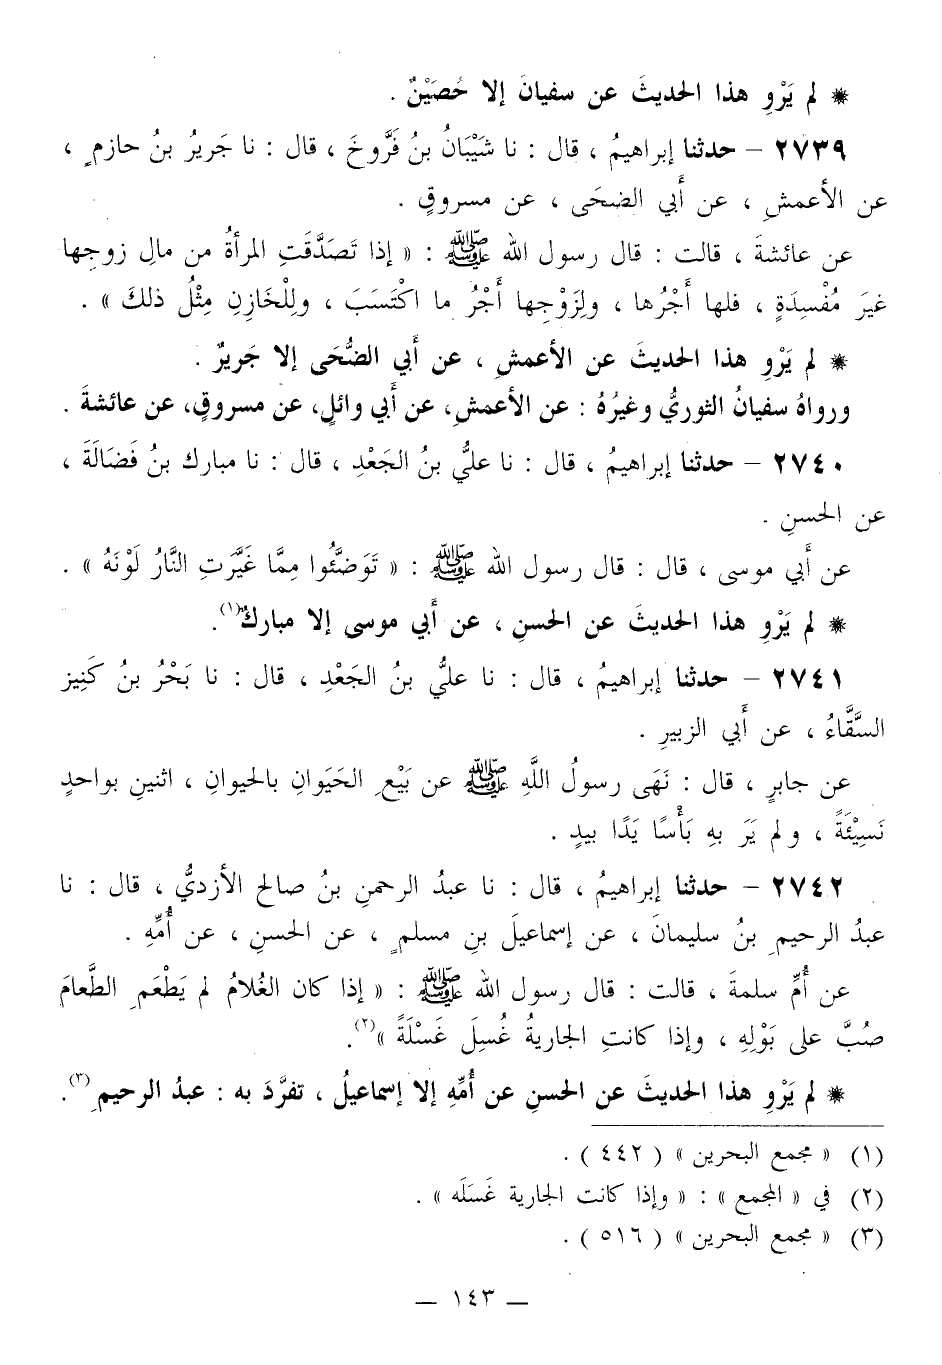 * لم يَرْوِ هذا الحديثَ عن سفيانَ إلا حُصَيْنٌ .
٢٧٣٩ – حدثنا إبراهيمُ ، قال : نا شَيْبَانُ بنُ فَرُّوخَ ، قال : نا جَريرُ بنُ حازمٍ ،
عن الأعمشِ ، عن أَبي الضحَى ، عن مسروقٍ .
عن عائشةَ ، قالت : قال رسول الله ﷺ : « إذا تَصَدَّقَتِ المرأةُ من مالِ زوجِها
غيرَ مُفْسِدَةٍ ، فلها أَجْرُها ، ولِزَوْجِها أَجْرُ ما اكْتَسَبَ ، ولِلْخَازِنِ مِثْلُ ذلكَ » .
* لم يَرْوِ هذا الحديثَ عن الأعمشِ ، عن أَبي الضُّحَى إلا جَريرٌ .
ورواهُ سفيانُ الثوريُّ وغيرُهُ : عن الأعمشِ، عن أَبي وائلٍ، عن مسروقٍ، عن عائشةَ .
٢٧٤٠ – حدثنا إبراهيمُ ، قال : نا عليُّ بنُ الجَعْدِ ، قال : نا مبارك بنُ فَضَالَةَ ،
عن الحسنِ .
عن أَبي موسى ، قال : قال رسول الله ﷺ : « تَوَضَّئُوا مِمَّا غَيَّرَتِ النَّارُ لَوْنَهُ » .
* لم يَرْوِ هذا الحديثَ عن الحسنِ ، عن أَبي موسى إلا مباركٌ(١).
٢٧٤١ – حدثنا إبراهيمُ ، قال : نا عليُّ بنُ الجَعْدِ ، قال : نا بَحْرُ بنُ كَنِيز
السَّقَّاءُ ، عن أَبي الزبيرِ .
عن جابرٍ ، قال : نَهَى رسولُ اللَّهِ ﷺ عن بَيْعِ الحَيَوانِ بالحيوانِ ، اثنينِ بواحدٍ
نَسِيْئَةً ، ولم يَرَ بهِ بَأْسًا يَدًا بيدٍ .
٢٧٤٢ – حدثنا إبراهيمُ ، قال : نا عبدُ الرحمنِ بنُ صالح الأزديُّ ، قال : نا
عبدُ الرحيمِ بنُ سليمانَ ، عن إسماعيلَ بنِ مسلمٍ ، عن الحسنِ ، عن أُمِّهِ .
عن أُمِّ سلمةَ ، قالت : قال رسول الله ﷺ : « إذا كان الغُلامُ لم يَطْعَمِ الطَّعامَ
صُبَّ على بَوْلِهِ ، وإذا كانتِ الجاريةُ غُسِلَ غَسْلَةً »(٢).
* لم يَرْوِ هذا الحديثَ عن الحسنِ عن أُمِّهِ إلا إسماعيلُ ، تفرَّدَ به : عبدُ الرحيمِ(٣).
(١) « مجمع البحرين » ( ٤٤٢ ) .
(٢) في « المجمع » : « وإذا كانت الجارية غَسَلَه » .
(٣) « مجمع البحرين » ( ٥١٦ ) .
– ١٤٣ –